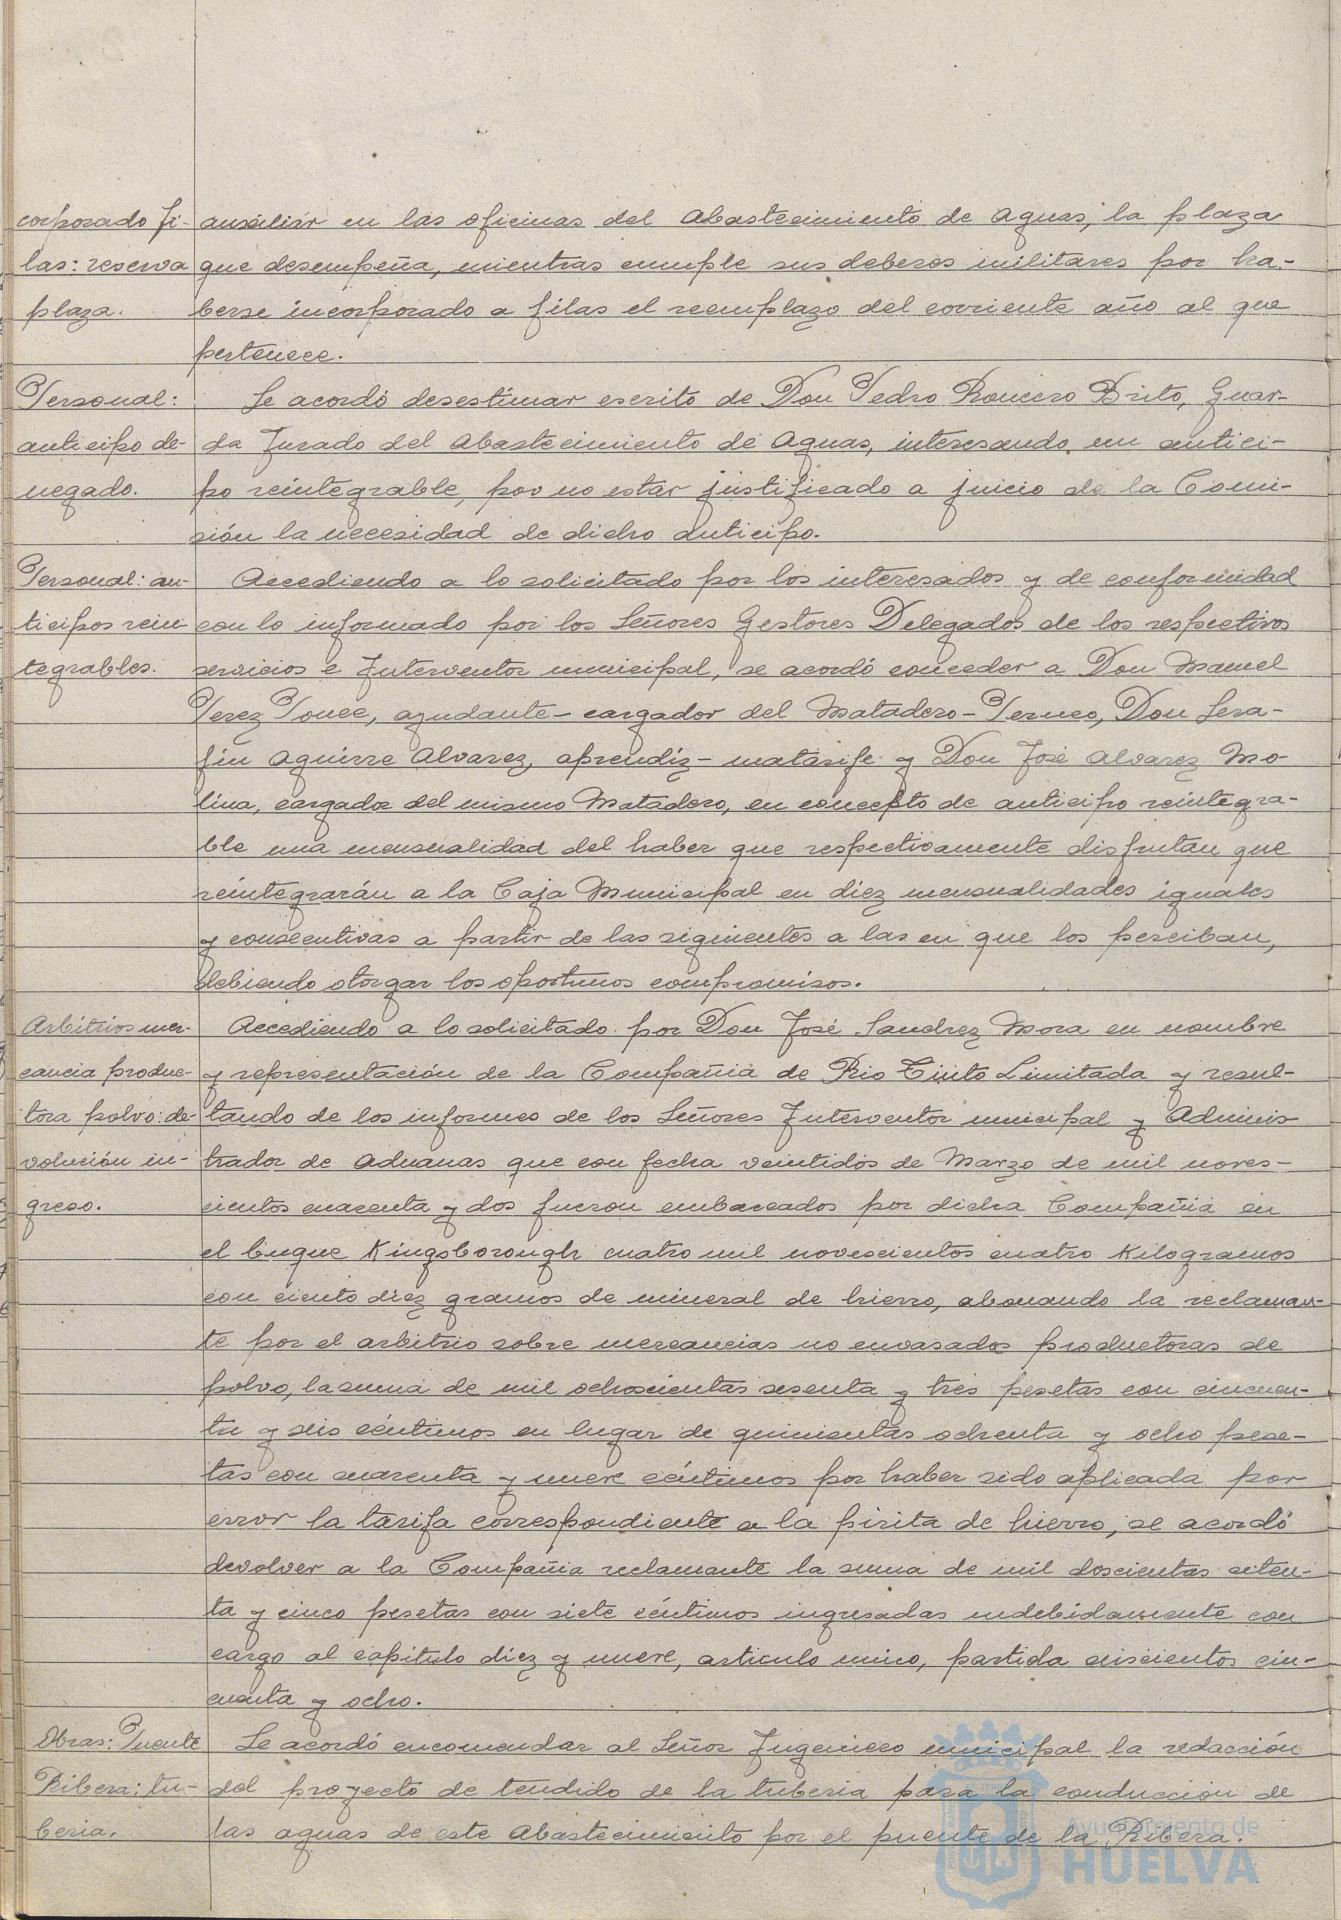 corporado fi-
las: reserva
plaza.
auxiliar en las oficinas del Abastecimiento de Aguas, la plaza
que desempeña, mientras cumple sus deberes militares por ha-
berse incorporado a filas el reemplazo del corriente año al que
pertenece.
Personal:
anticipo de-
negado.
Se acordó desestimar escrito de Don Pedro Romero Brito, Guar-
da Jurado del Abastecimiento de Aguas, interesando un antici-
po reintegrable, por no estar justificado a juicio de la Comi-
sión la necesidad de dicho anticipo.
Personal: an-
ticipos rein-
tegrables.
Accediendo a lo solicitado por los interesados y de conformidad
con lo informado por los Señores Gestores Delegados de los respectivos
servicios e Interventor municipal, se acordó conceder a Don Manuel
Perez Ponce, ayudante-cargador del Matadero-Perneo, Don Sera-
fin Aguirre Alvarez, aprendiz-matarife y Don José Alvarez Mo-
lina, cargador del mismo Matadero, en concepto de anticipo reintegra-
ble una mensualidad del haber que respectivamente disfrutan que
reintegrarán a la Caja Municipal en diez mensualidades iguales
y consecutivas a partir de las siguientes a las en que los perciban,
debiendo otorgar los oportunos compromisos.
Arbitrios mer-
cancia produc-
tora polvo: de-
volución in-
greso.
Accediendo a lo solicitado por Don José Sanchez Mora en nombre
y representación de la Compañia de Rio Tinto Limitada y resul-
tando de los informes de los Señores Interventor municipal y Adminis
trador de Aduanas que con fecha veintidós de Marzo de mil noves-
cientos cuarenta y dos fueron embarcados por dicha Compañia en
el buque Kingsborough cuatro mil novescientos cuatro Kilogramos
con ciento diez gramos de mineral de hierro, abonando la reclaman-
te por el arbitrio sobre mercancias no envasados productoras de
polvo, la suma de mil ochoscientas sesenta y tres pesetas con cincuen-
ta y seis céntimos en lugar de quinientas ochenta y ocho pese-
tas con cuarenta y nueve céntimos por haber sido aplicada por
error la tarifa correspondiente a la pirita de hierro, se acordó
devolver a la Compañia reclamante la suma de mil doscientas seten-
ta y cinco pesetas con siete céntimos ingresadas indebidamente con
cargo al capitulo diez y nueve, articulo unico, partida seiscientos cin-
cuenta y ocho.
Obras: Puente
Ribera: tu-
beria.
Se acordó encomendar al Señor Ingeniero municipal la redacción
del proyecto de tendido de la tuberia para la conducción de
las aguas de este Abastecimiento por el puente de la Ribera.
Ayuntamiento de
HUELVA